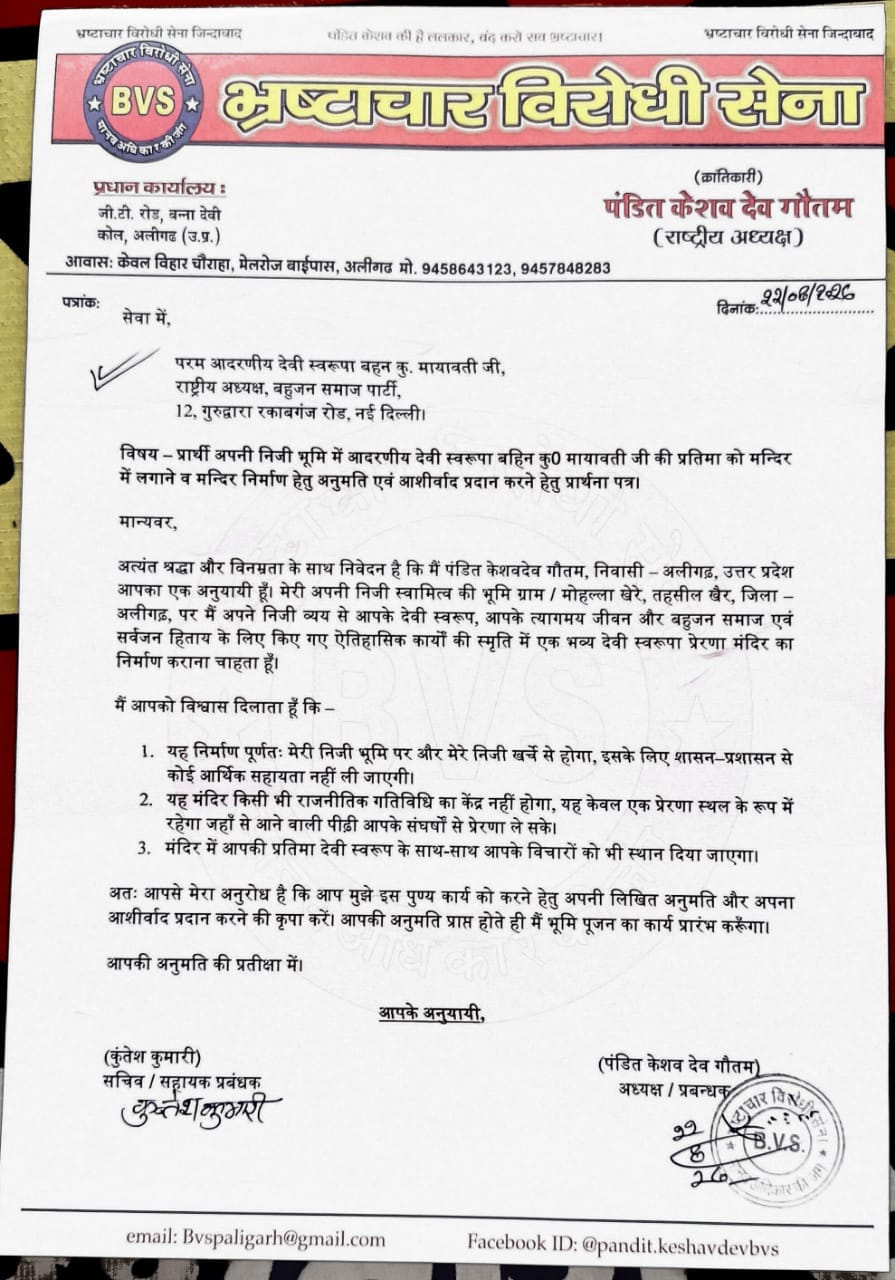 भ्रष्टाचार विरोधी सेना जिन्दाबाद
पंडित केशव की है ललकार, बंद करो सब भ्रष्टाचार।
भ्रष्टाचार विरोधी सेना जिन्दाबाद
भ्रष्टाचार विरोधी सेना
BVS
मानव अधिकार की जंग
भ्रष्टाचार विरोधी सेना
प्रधान कार्यालय :
जी.टी. रोड, बन्ना देवी
कोल, अलीगढ (उ.प्र.)
(क्रांतिकारी)
पंडित केशव देव गौतम
(राष्ट्रीय अध्यक्ष)
आवास: केवल विहार चौराहा, मेलरोज बाईपास, अलीगढ मो. 9458643123, 9457848283
पत्रांक:
दिनांक:
सेवा में,
परम आदरणीय देवी स्वरूपा बहन कु. मायावती जी,
राष्ट्रीय अध्यक्ष, बहुजन समाज पार्टी,
12, गुरुद्वारा रकाबगंज रोड, नई दिल्ली।
विषय – प्रार्थी अपनी निजी भूमि में आदरणीय देवी स्वरूपा बहिन कु0 मायावती जी की प्रतिमा को मन्दिर
में लगाने व मन्दिर निर्माण हेतु अनुमति एवं आशीर्वाद प्रदान करने हेतु प्रार्थना पत्र।
मान्यवर,
अत्यंत श्रद्धा और विनम्रता के साथ निवेदन है कि मैं पंडित केशवदेव गौतम, निवासी – अलीगढ़, उत्तर प्रदेश
आपका एक अनुयायी हूँ। मेरी अपनी निजी स्वामित्व की भूमि ग्राम / मोहल्ला खेरे, तहसील खैर, जिला –
अलीगढ़, पर मैं अपने निजी व्यय से आपके देवी स्वरूप, आपके त्यागमय जीवन और बहुजन समाज एवं
सर्वजन हिताय के लिए किए गए ऐतिहासिक कार्यों की स्मृति में एक भव्य देवी स्वरूपा प्रेरणा मंदिर का
निर्माण कराना चाहता हूँ।
मैं आपको विश्वास दिलाता हूँ कि –
1. यह निर्माण पूर्णतः मेरी निजी भूमि पर और मेरे निजी खर्चे से होगा, इसके लिए शासन–प्रशासन से
कोई आर्थिक सहायता नहीं ली जाएगी।
2. यह मंदिर किसी भी राजनीतिक गतिविधि का केंद्र नहीं होगा, यह केवल एक प्रेरणा स्थल के रूप में
रहेगा जहाँ से आने वाली पीढ़ी आपके संघर्षों से प्रेरणा ले सके।
3. मंदिर में आपकी प्रतिमा देवी स्वरूप के साथ-साथ आपके विचारों को भी स्थान दिया जाएगा।
अतः आपसे मेरा अनुरोध है कि आप मुझे इस पुण्य कार्य को करने हेतु अपनी लिखित अनुमति और अपना
आशीर्वाद प्रदान करने की कृपा करें। आपकी अनुमति प्राप्त होते ही मैं भूमि पूजन का कार्य प्रारंभ करूँगा।
आपकी अनुमति की प्रतीक्षा में।
आपके अनुयायी,
(कुंतेश कुमारी)
सचिव / सहायक प्रबंधक
कुन्तेश कुमारी
(पंडित केशव देव गौतम)
अध्यक्ष / प्रबन्धक
B.V.S.
email: Bvspaligarh@gmail.com
Facebook ID: @pandit.keshavdevbvs